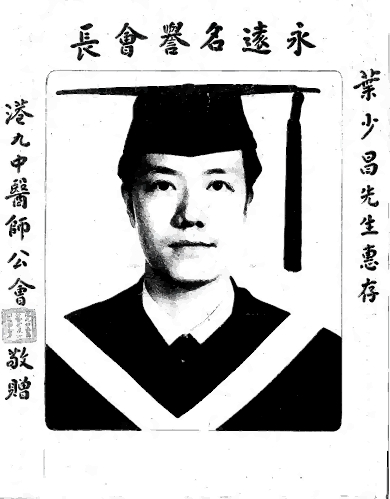 永遠名譽會長
葉少昌先生惠存
港九中醫師公會敬贈